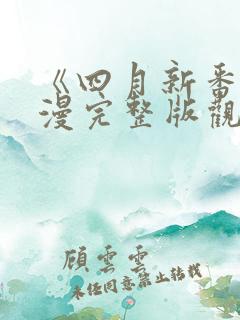 《四月新番
漫完整版觀
顧雲雲
未经同意禁止转载